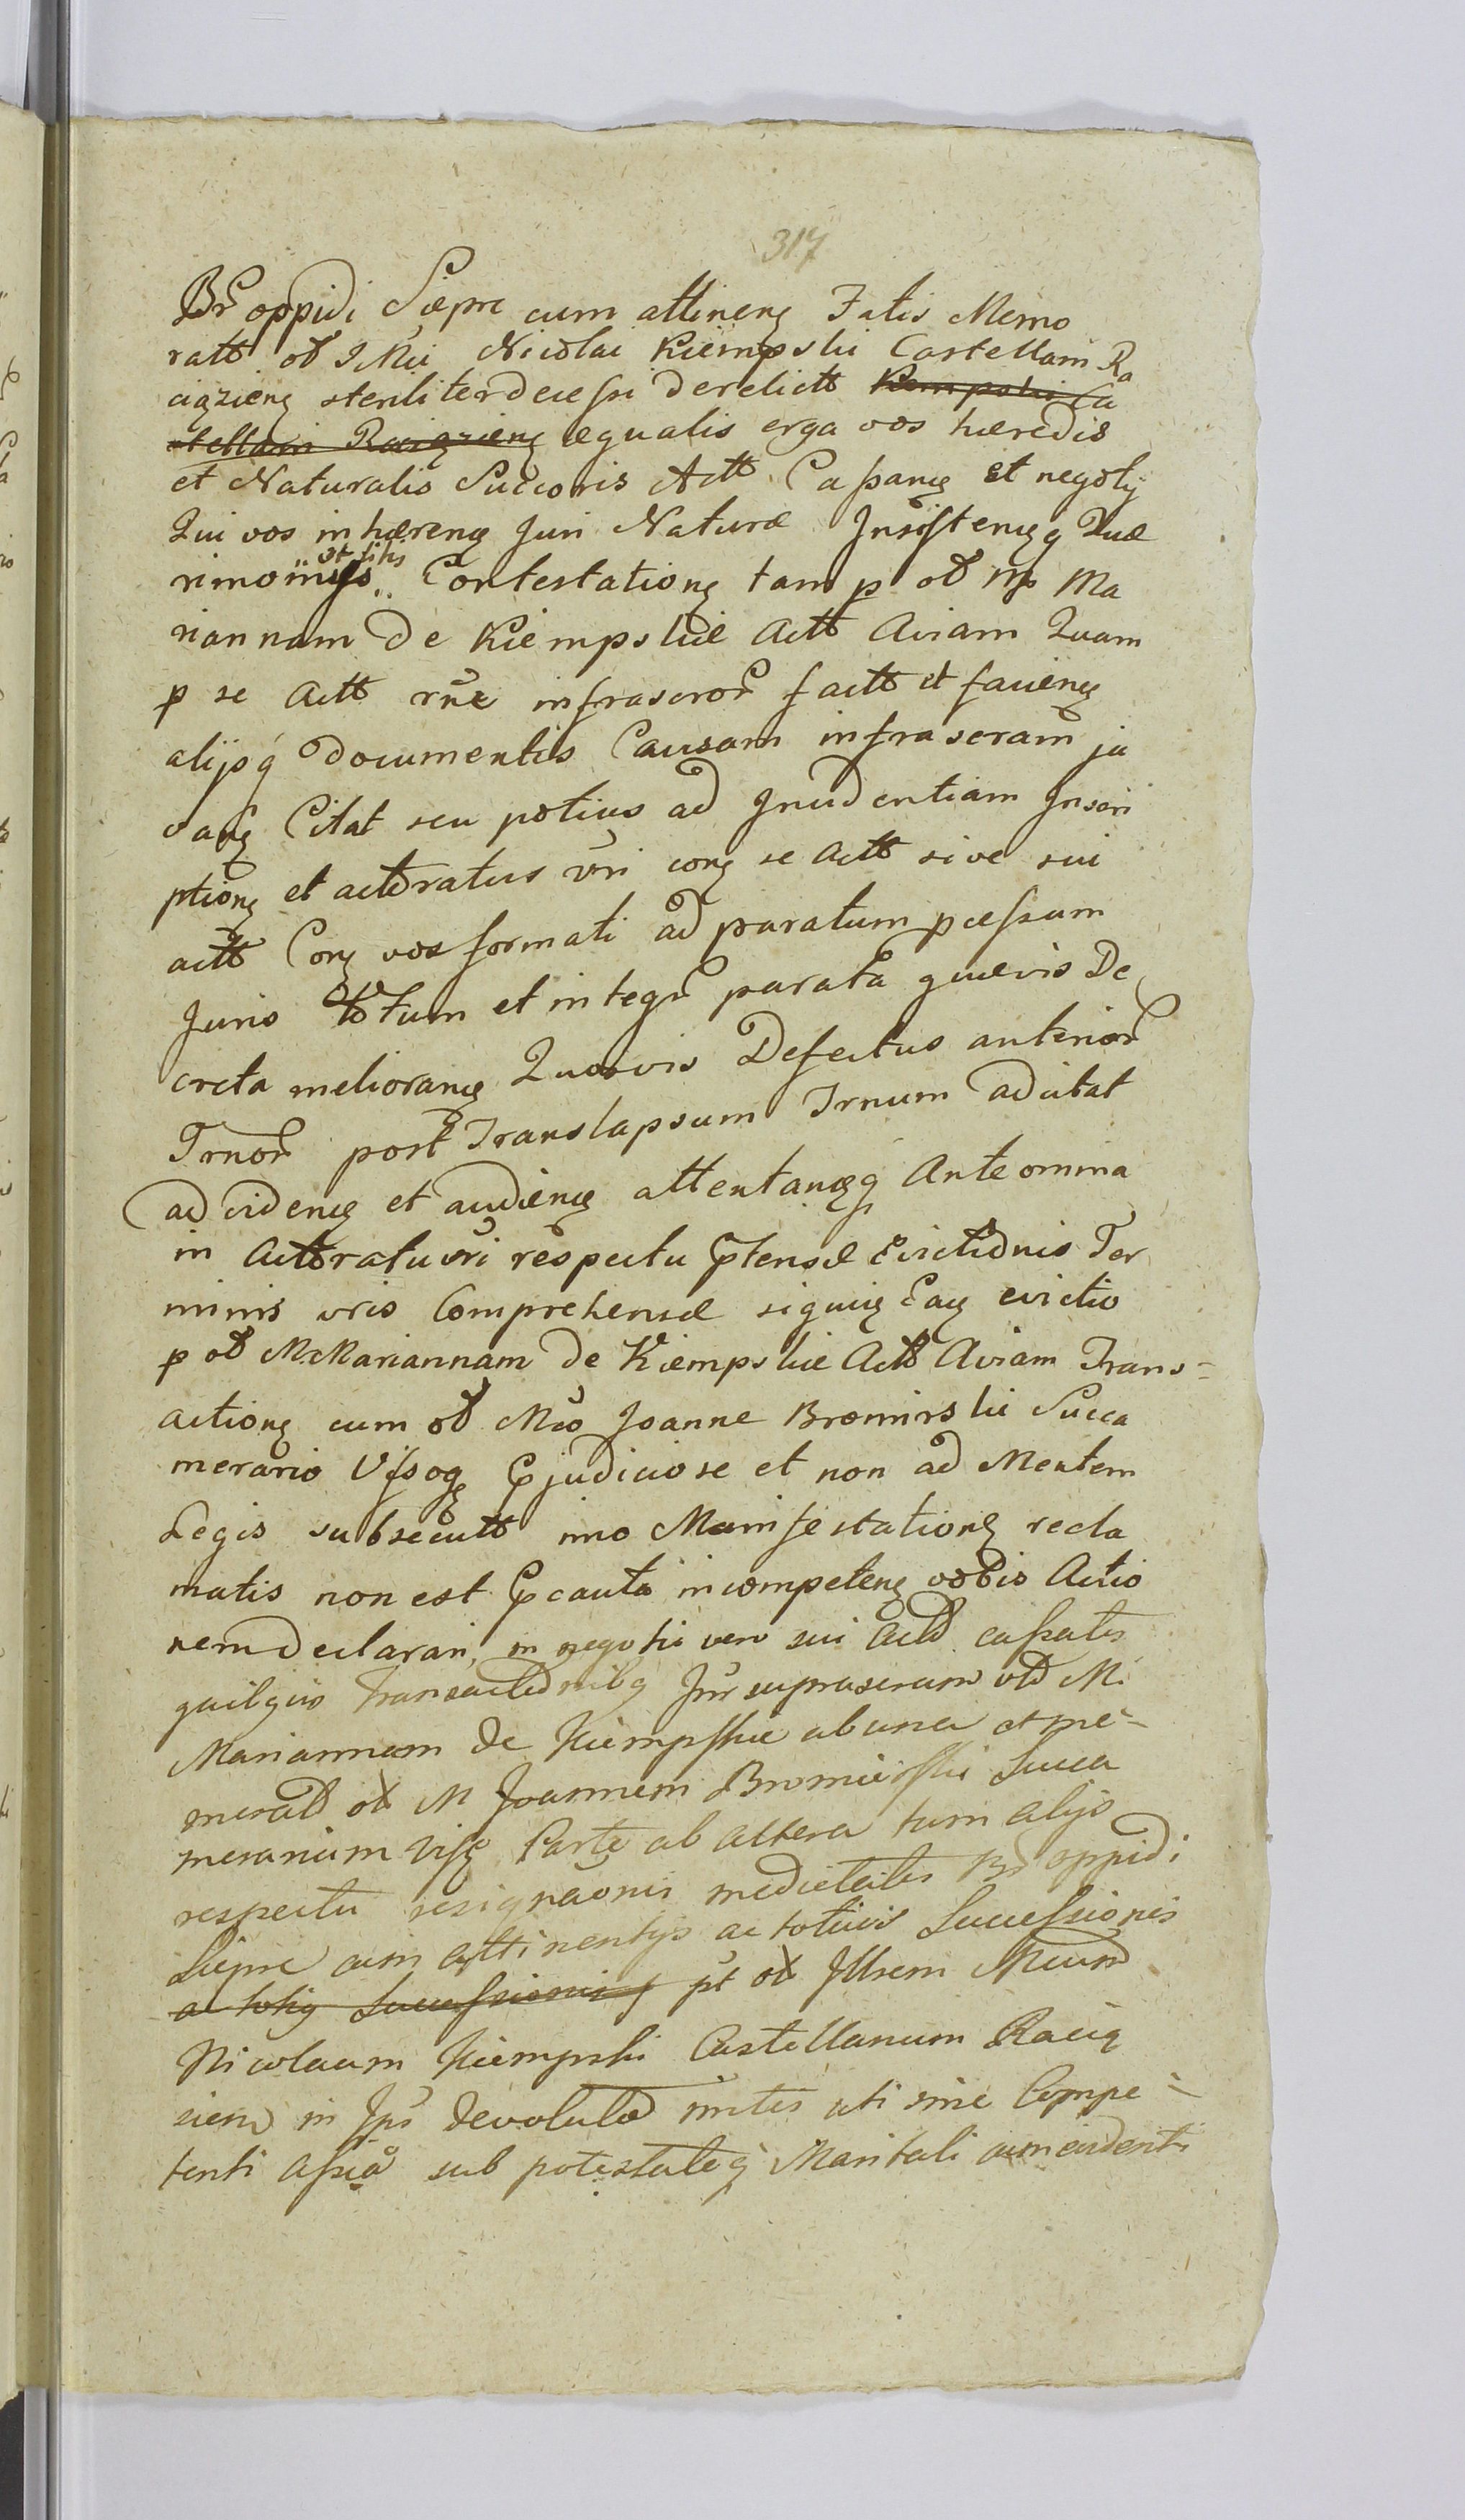 317
Br oppidi Siepre cum attineng Fatis Memo
ratt ol Mci Nicolai Kiempski Castellani Ra
ciązieng steriliter decessi derelictt Kempski Ca
stellani Raciązieng æqualis erga vos hæredis
et Naturalis Succoris Actt Cassang et negotÿ
Qui vos inhæreng Juri Naturæ Insistengq Quæ
rimonÿs et sitis Contestationg tam p ol M Ma
riannam de Kiempskie Actt Aviam Quam
p se Actt rne infrascror factt et facieng
alÿsq documentis Causam infrascram ju
vang Citat seu potius ad Incidentiam Inscri
ptiong et actoratus vri cong se Actt sive sui
actt Cong vos formati ad paratum pcessum
Juris totum et integr parata quævis De
creta meliorang Quosvis Defectus anterior
Trnor post Translapsum Trnum adcitat
ad videng et audieng attentangq Ante omnia
in Actoratu vri respectu ptensæ Evictionis Ter
minis vris Comprehensæ siquig Eag evictio
p ol M Mariannam de Kiempskie Actt Aviam Trans-
actiong cum ol Mco Joanne Bromirski Succa
merario Vissog pjudiciose et non ad Mentem
Legis subsecutt imo Manifestationg recla
matis non est pcauta incompeteng vobis Actio
nem declarari, in negotio vero sui Actt cassatis
quibqvis transactionibq Inr suprascram old M.
Mariannam de Kiempskie ab una et me-
moratt ol M Joannem Bromirski Succa
merarium Viss Parte ab altera tum alÿs
respectu resignaonis medietatis Br oppidi
Siepre cum attinentÿs ac totius Successionis
ac totiq Successionis pt ol Illrem Mcum
Nicolaum Kiempski Castellanum Raciq
ziens in Ips devoluta initis uti sine Compe-
tenti Assia sub potestateq Maritali cum evidenti